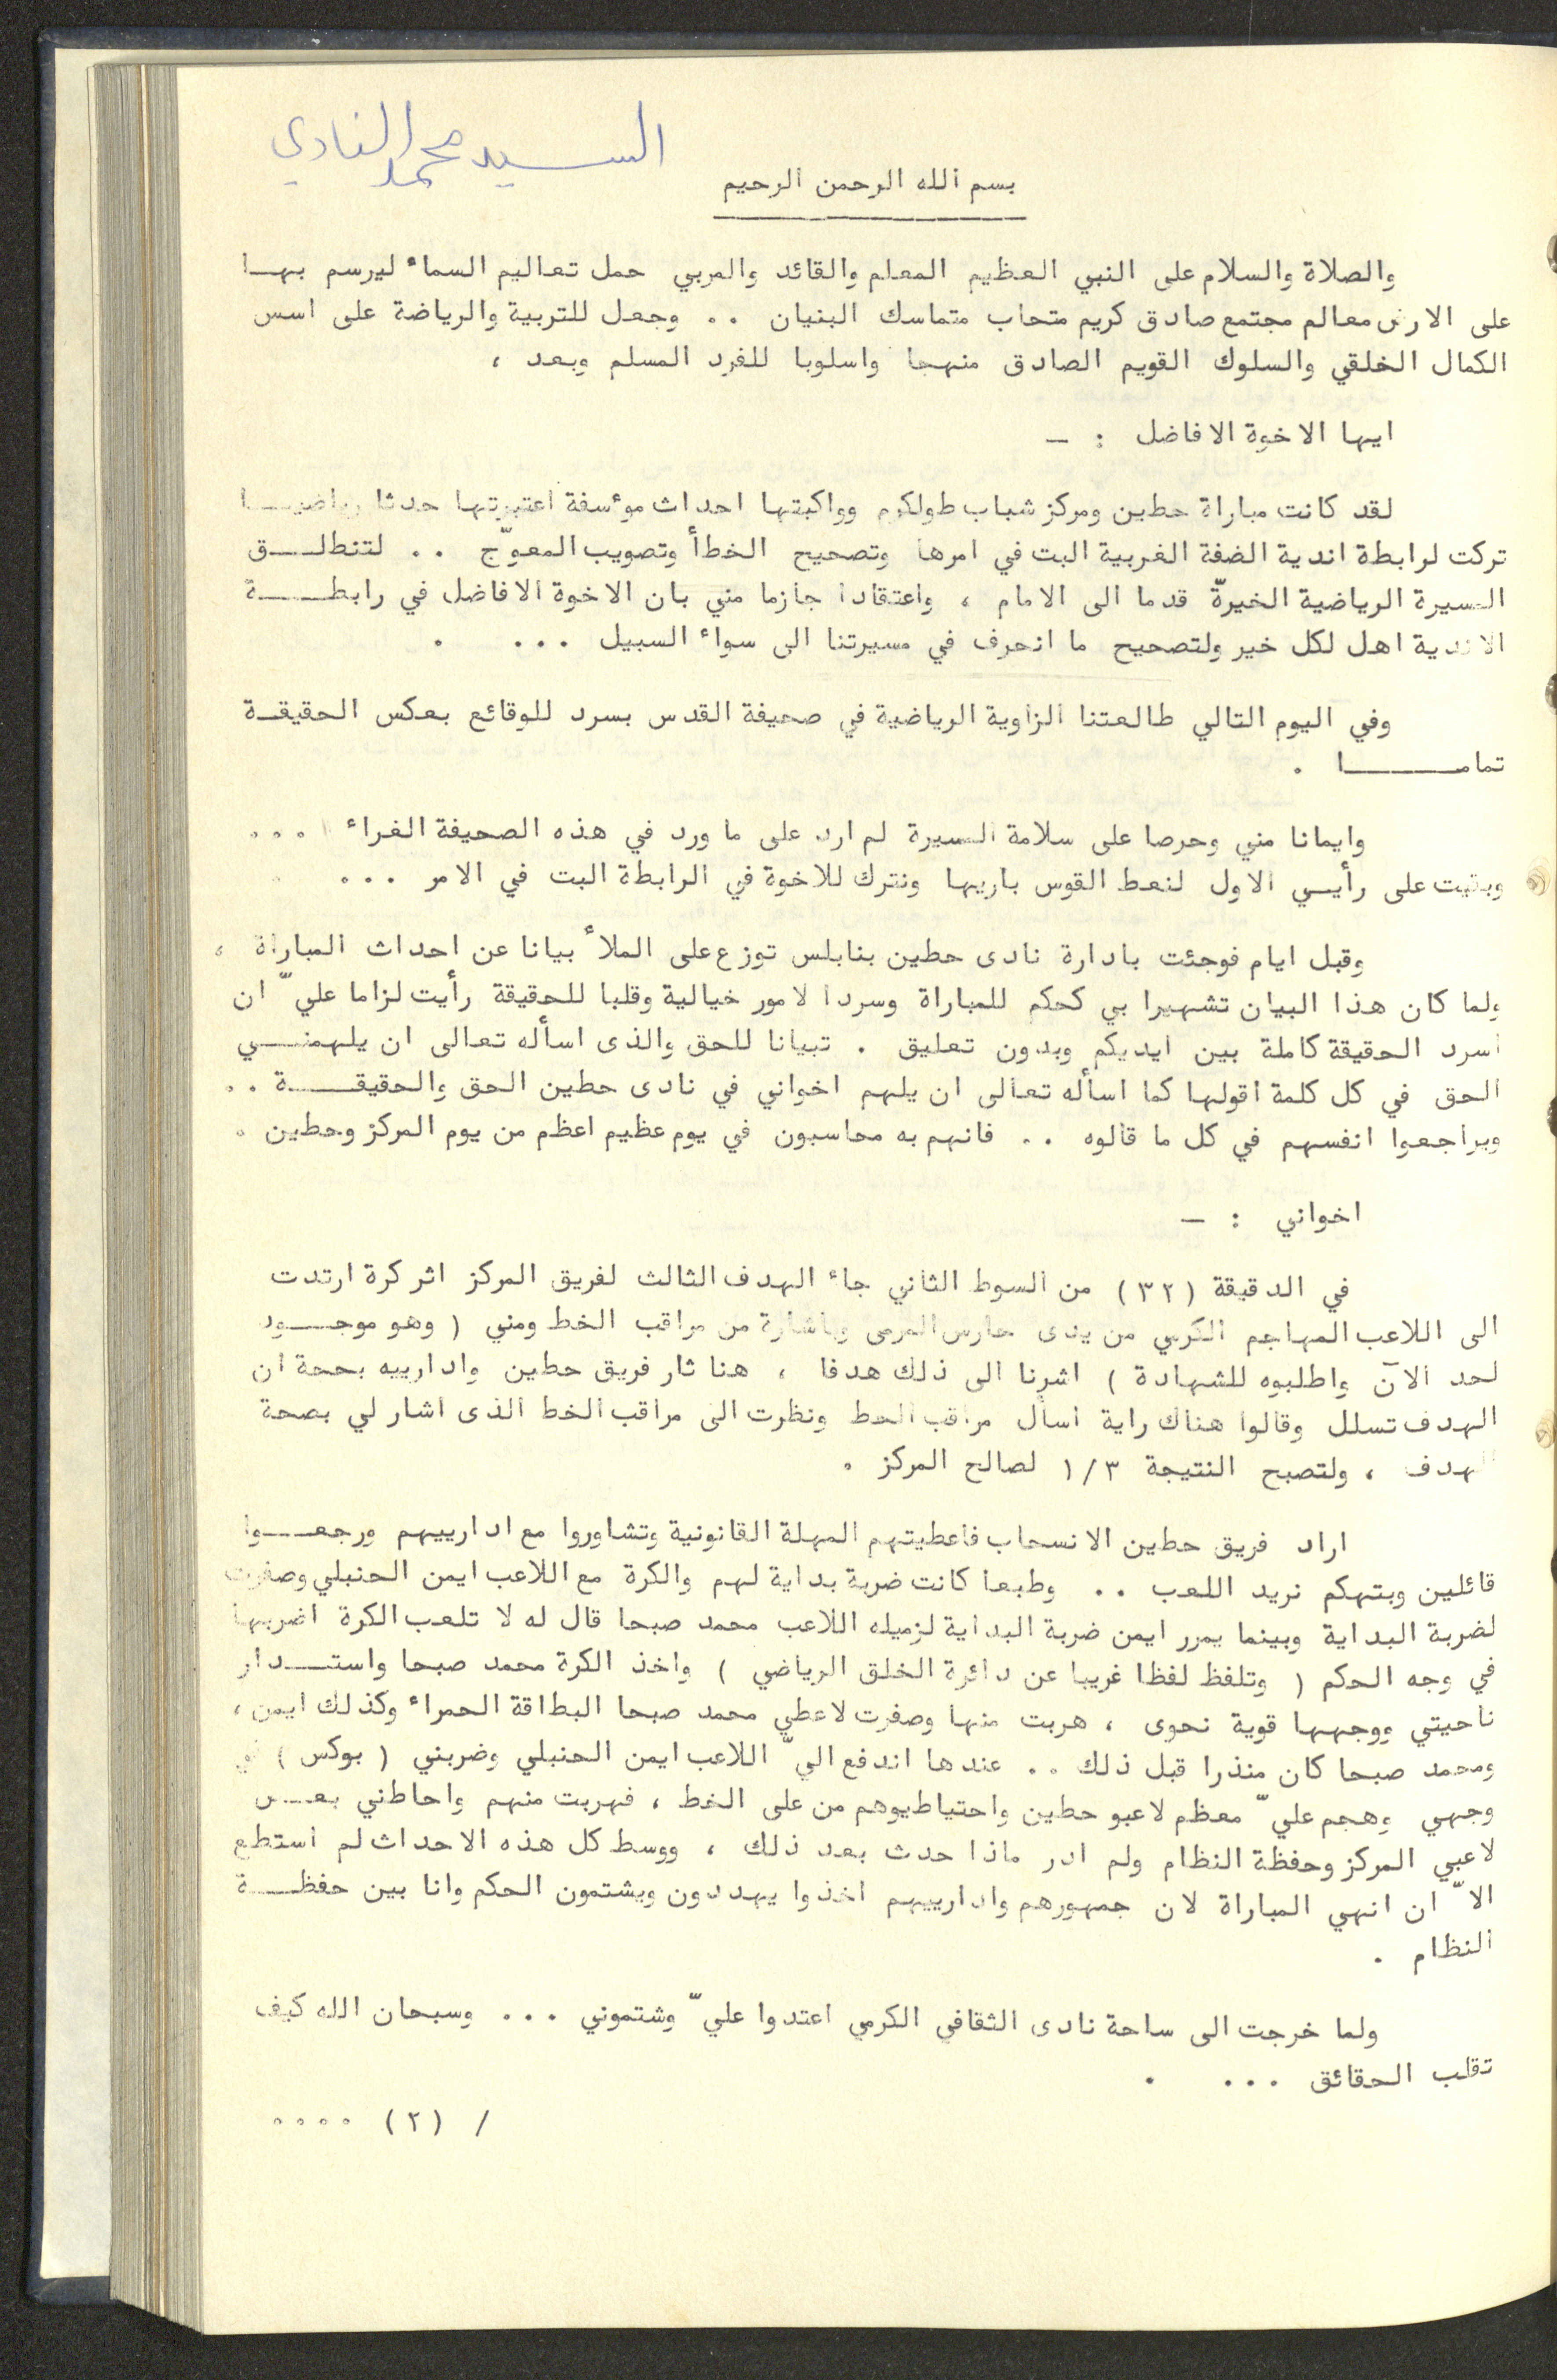 السيد محمد النادي
بسم الله الرحمن الرحيم
والصلاة والسلام على النبي العظيم المعلم والقائد والمربي حمل تعاليم السماء ليرسم بهـــا
على الارض معالم مجتمع صادق كريم متحاب متماسك البنيان .. وجعل للتربية والرياضة على اسس
الكمال الخلقي والسلوك القويم الصادق منهجا واسلوبا للفرد المسلم وبعد ،
ايها الاخوة الافاضل : -
لقد كانت مباراة حطين ومركز شباب طولكرم وواكبتها احداث مؤسفة اعتبرتها حدثا رياضيـــا
تركت لرابطة اندية الضفة الغربية البت في امرها وتصحيح الخطأ وتصويب المعوّج .. لتنطلـــق
المسيرة الرياضية الخيرّة قدما الى الامام ، واعتقادا جازما مني بان الاخوة الافاضل في رابطـــة
الاندية اهل لكل خير ولتصحيح ما انحرف في مسيرتنا الى سواء السبيل ... .
وفي اليوم التالي طالعتنا الزاوية الرياضية في صحيفة القدس بسرد للوقائع بعكس الحقيقـة
تمامـــــا .
وايمانا مني وحرصا على سلامة المسيرة لم ارد على ما ورد في هذه الصحيفة الغراء ...
وبقيت على رأيـي الاول لنعط القوس باريها ونترك للاخوة في الرابطة البت في الامر ...
وقبل ايام فوجئت بادارة نادى حطين بنابلس توزع على الملأ بيانا عن احداث المباراة ،
ولما كان هذا البيان تشهيرا بي كحكم للمباراة وسردا لامور خيالية وقلبا للحقيقة رأيت لزاما عليّ ان
اسرد الحقيقة كاملة بين ايديكم وبدون تعليق . تبيانا للحق والذى اسأله تعالى ان يلهمنـــي
الحق في كل كلمة اقولها كما اسأله تعالى ان يلهم اخواني في نادى حطين الحق والحقيقـــة ..
ويراجعوا انفسهم في كل ما قالوه .. فانهم به محاسبون في يوم عظيم اعظم من يوم المركز وحطين .
اخواني : -
في الدقيقة (٣٢) من السوط الثاني جاء الهدف الثالث لفريق المركز اثر كرة ارتدت
الى اللاعب المهاجم الكرمي من يدى حارس المرمى وباشارة من مراقب الخط ومني ( وهو موجـــود
لحد الآن واطلبوه للشهادة ) اشرنا الى ذلك هدفا ، هنا ثار فريق حطين وادارييه بحجة ان
الهدف تسلل وقالوا هناك راية اسأل مراقب الخط ونظرت الى مراقب الخط الذى اشار لي بصحة
الهدف ، ولتصبح النتيجة ١/٣ لصالح المركز .
اراد فريق حطين الانسحاب فاعطيتهم المهلة القانونية وتشاوروا مع ادارييهم ورجعـــوا
قائلين وبتهكم نريد اللعب .. وطبعا كانت ضربة بداية لهم والكرة مع اللاعب ايمن الحنبلي وصفرت
لضربة البداية وبينما يمرر ايمن ضربة البداية لزميله اللاعب محمد صبحا قال له لا تلعب الكرة اضربها
في وجه الحكم ( وتلفظ لفظا غريبا عن دائرة الخلق الرياضي ) واخذ الكرة محمد صبحا واستـــدار
ناحيتي ووجهها قوية نحوى ، هربت منها وصفرت لاعطي محمد صبحا البطاقة الحمراء وكذلك ايمن ،
ومحمد صبحا كان منذرا قبل ذلك .. عندها اندفع اليّ اللاعب ايمن الحنبلي وضربني ( بوكس ) في
وجهي وهجم عليّ معظم لاعبو حطين واحتياطيوهم من على الخط ، فهربت منهم واحاطني بعـــض
لاعبي المركز وحفظة النظام ولم ادر ماذا حدث بعد ذلك ، ووسط كل هذه الاحداث لم استطع
الاّ ان انهي المباراة لان جمهورهم وادارييهم اخذوا يهددون ويشتمون الحكم وانا بين حفظـــة
النظام .
ولما خرجت الى ساحة نادى الثقافي الكرمي اعتدوا عليّ وشتموني ... وسبحان الله كيف
تقلب الحقائق ... .
/ (٢) ....